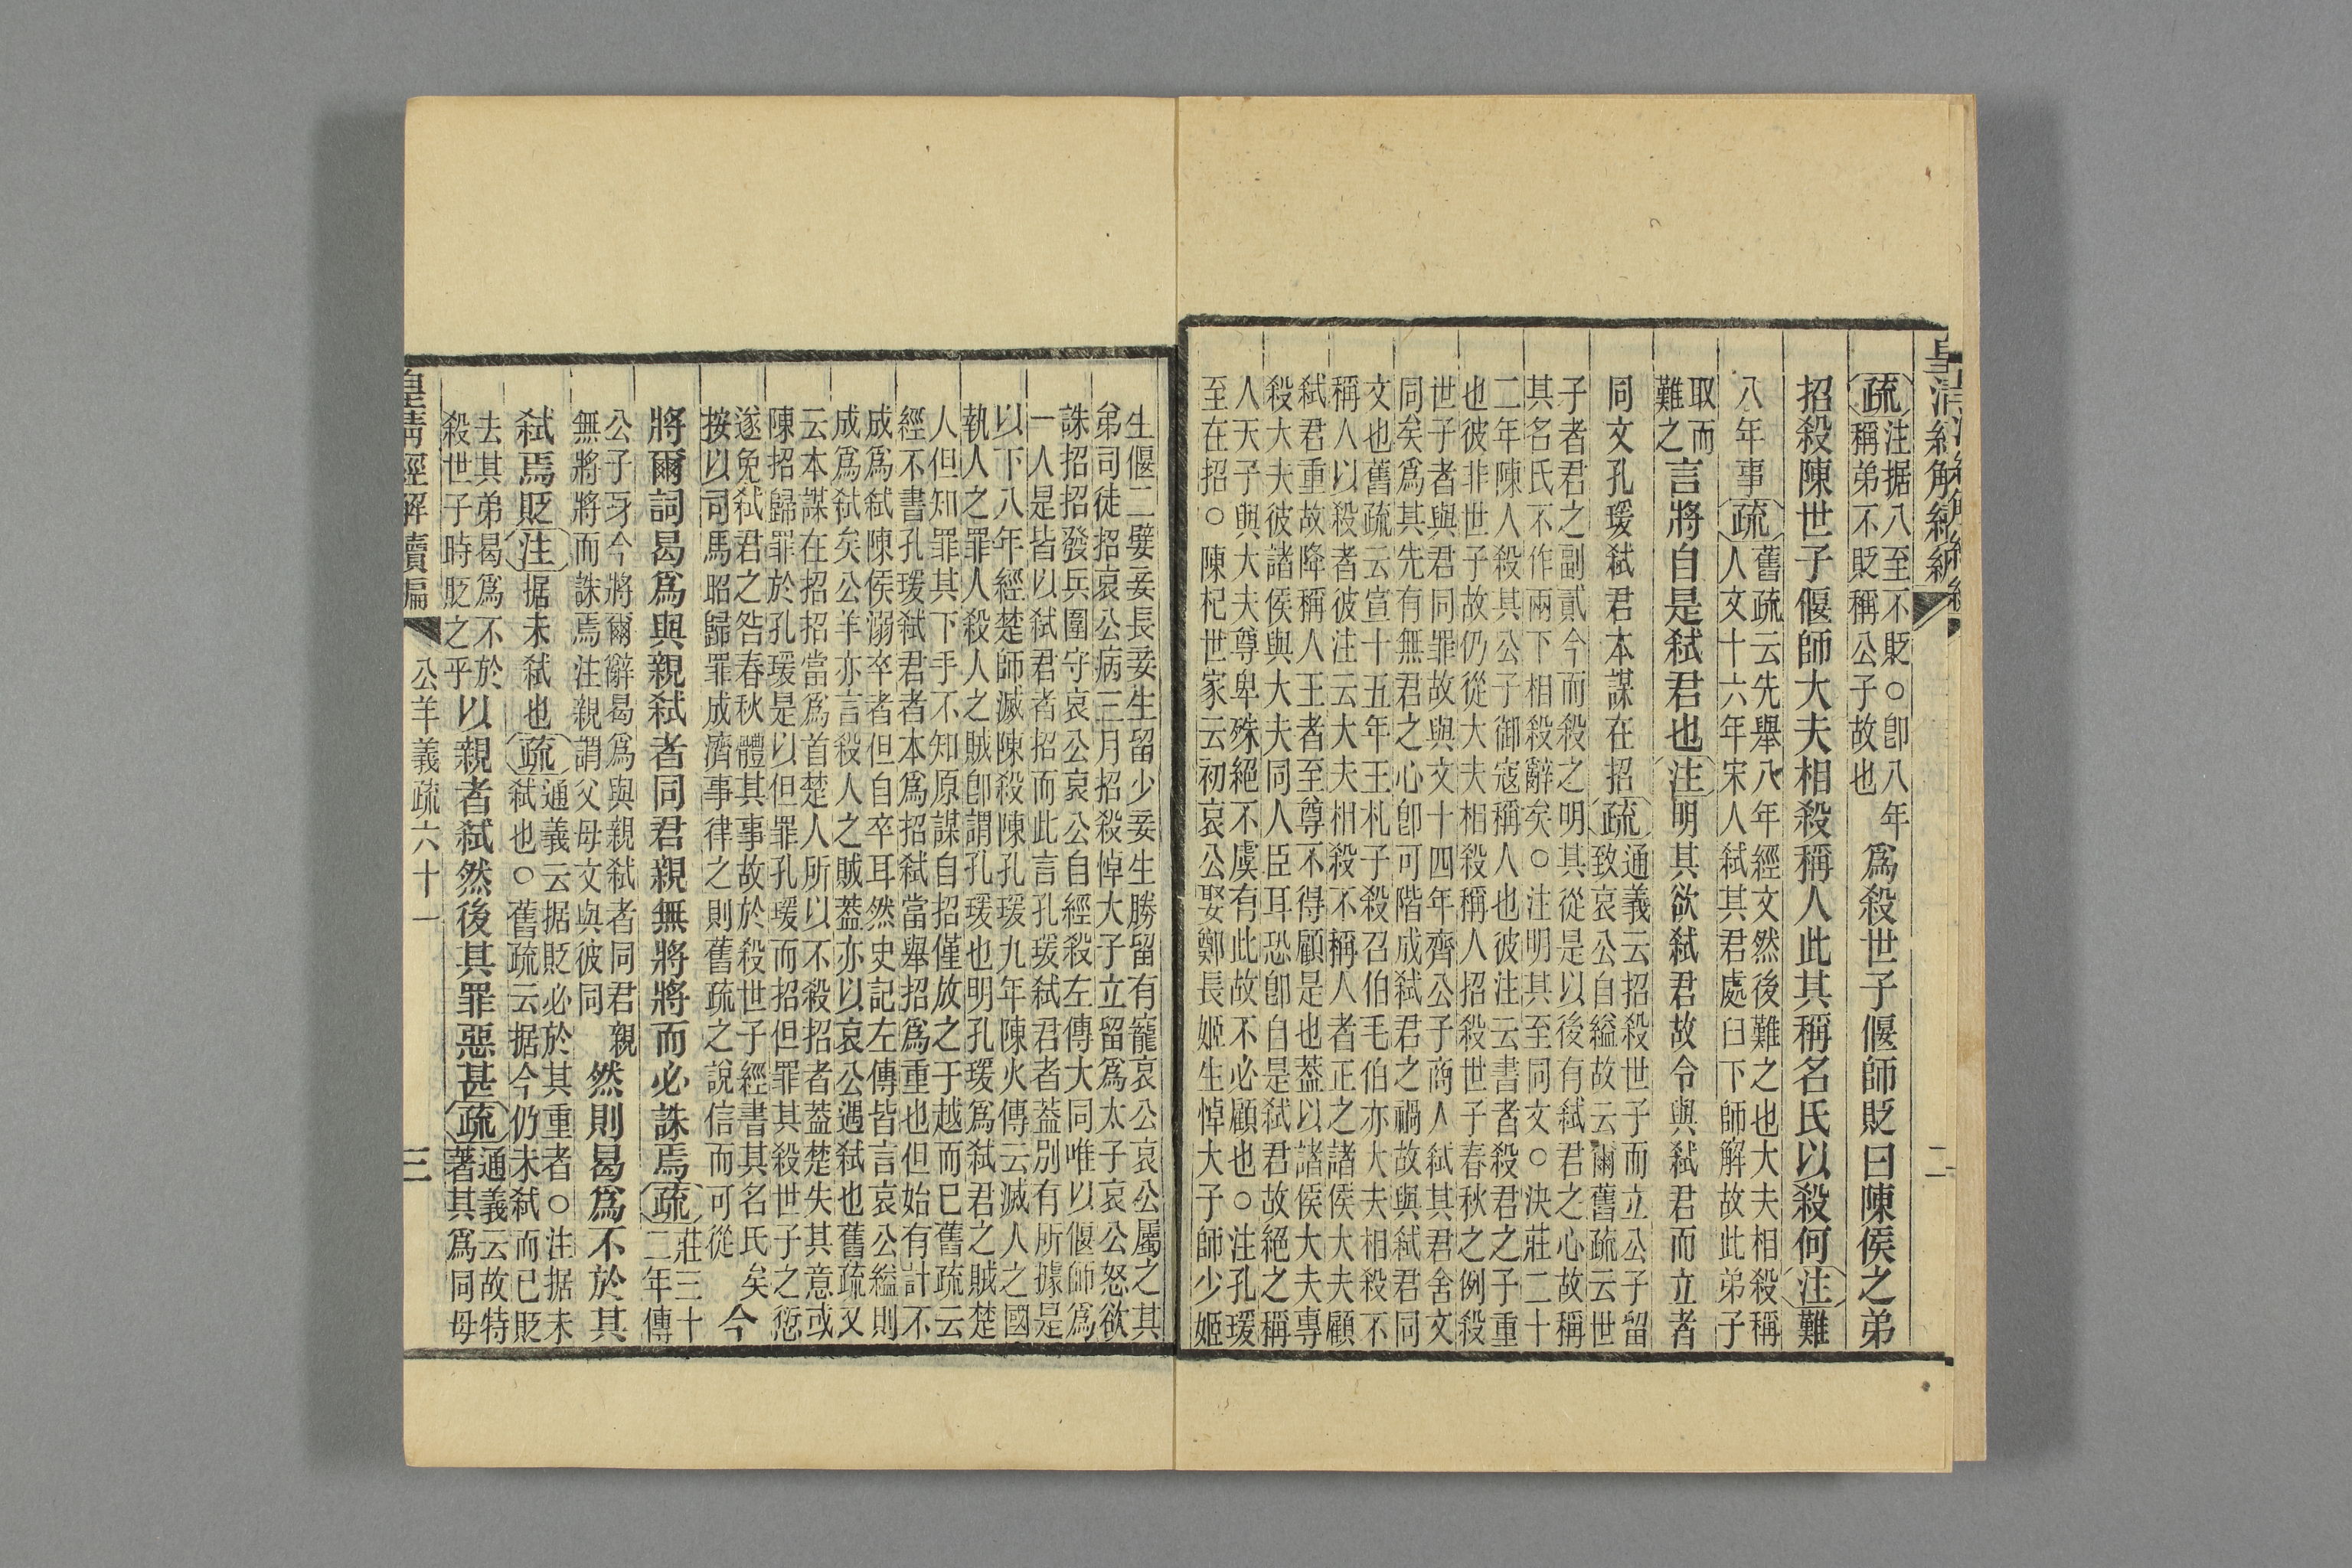 疏注据八至不貶○卽八年
稱弟不貶稱公子故也
爲殺世子偃師貶曰陳侯之弟
招殺陳世子偃師大夫相殺稱人此其稱名氏以殺何注難
八年事疏舊疏云先舉八年經文然後難之也大夫相殺稱
人文十六年宋人弑其君處臼下師解故此弟子
取而
難之
言將自是弑君也注明其欲弑君故令與弑君而立者
同文孔瑗弑君本謀在招疏通義云招殺世子而立公子留
致哀公自縊故云爾舊疏云世
子者君之副貳今而殺之明其從是以後有弑君之心故稱
其名氏不作兩下相殺辭矣○注明其至同文○決莊二十
二年陳人殺其公子御寇稱人也彼注云書者殺君之子重
也彼非世子故仍從大夫相殺稱人招殺世子春秋之例殺
世子者與君同罪故與文十四年齊公子商人弑其君舍文
同矣爲其先有無君之心卽可階成弑君之禍故與弑君同
文也舊疏云宣十五年王札子殺召伯毛伯亦大夫相殺不
稱人以殺者彼注云大夫相殺不稱人者正之諸侯大夫顧
弑君重故降稱人王者至尊不得顧是也蓋以諸侯大夫專
殺大夫彼諸侯與大夫同人臣耳恐卽自是弑君故絕之稱
人天子與大夫尊卑殊絕不虞有此故不必顧也○注孔瑗
至在招○陳杞世家云初哀公娶鄭長姬生悼大子師少姬
生偃二嬖妾長妾生留少妾生勝留有寵哀公哀公屬之其
弟司徒招哀公病三月招殺悼大子立留爲太子哀公怒欲
誅招招發兵圍守哀公哀公自經殺左傳大同唯以偃師爲
一人是皆以弑君者招而此言孔瑗弑君者蓋別有所據是
以下八年經楚師滅陳殺陳孔瑗九年陳火傳云滅人之國
執人之罪人殺人之賊卽謂孔瑗也明孔瑗爲弑君之賊楚
人但知罪其下手不知原謀自招僅放之于越而已舊疏云
經不書孔瑗弑君者本爲招弑當舉招爲重也但始有計不
成爲弑陳侯溺卒者但自卒耳然史記左傳皆言哀公縊則
成爲弑矣公羊亦言殺人之賊蓋亦以哀公遇弑也舊疏又
云本謀在招招當爲首楚人所以不殺招者蓋楚失其意或
陳招歸罪於孔瑗是以但罪孔瑗而招但罪其殺世子之愆
遂免弑君之咎春秋體其事故於殺世子經書其名氏矣
按以司馬昭歸罪成濟事律之則舊疏之說信而可從
今
將爾詞曷爲與親弑者同君親無將將而必誅焉疏莊三十
二年傳
公子牙今將爾辭曷爲與親弑者同君親
無將將而誅焉注親謂父母文與彼同
然則曷爲不於其
弑焉貶注据未弑也疏通義云据貶必於其重者○注据未
弑也○舊疏云据今仍未弑而已貶
去其弟曷爲不於
殺世子時貶之乎
以親者弑然後其罪惡甚疏通義云故特
著其爲同母
公羊義疏六十一
三